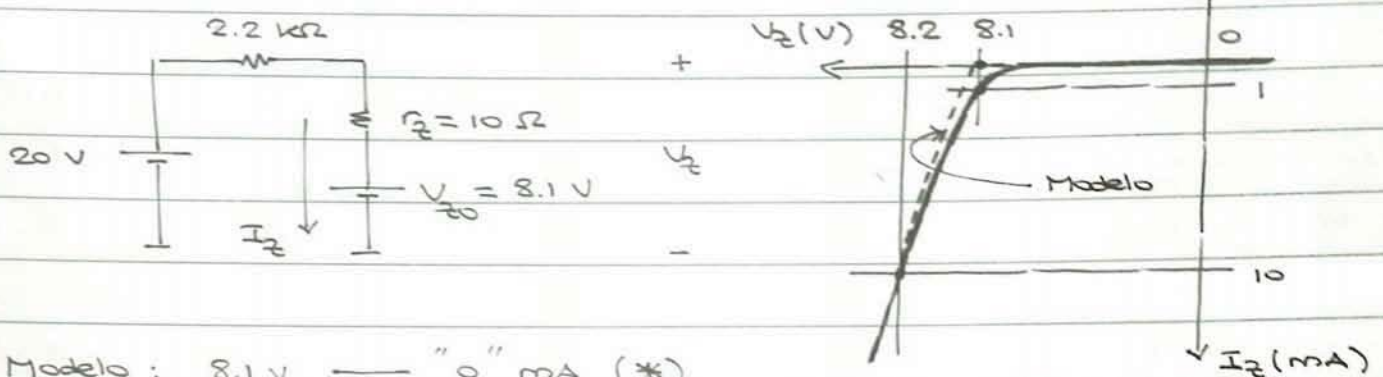 2.2 kΩ
20 V
r_z = 10 Ω
V_z0 = 8.1 V
I_z
+
V_z
-
V_z (V) 8.2 8.1 0
1
Modelo
10
I_z (mA)
Modelo : 8.1 V — "0" mA (*)